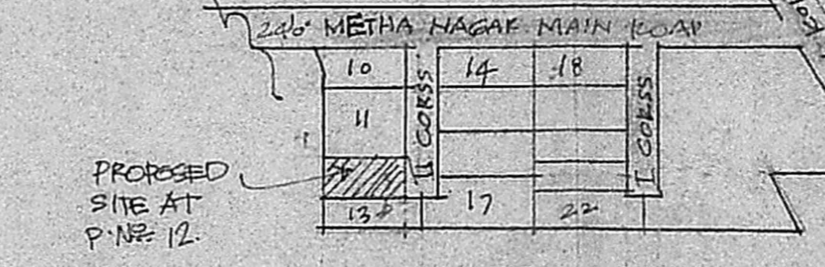 24'0" METHA NAGAR MAIN ROAD
10
14
18
11
II CORSS
I CORSS
PROPOSED
SITE AT
P.No 12.
13
17
22